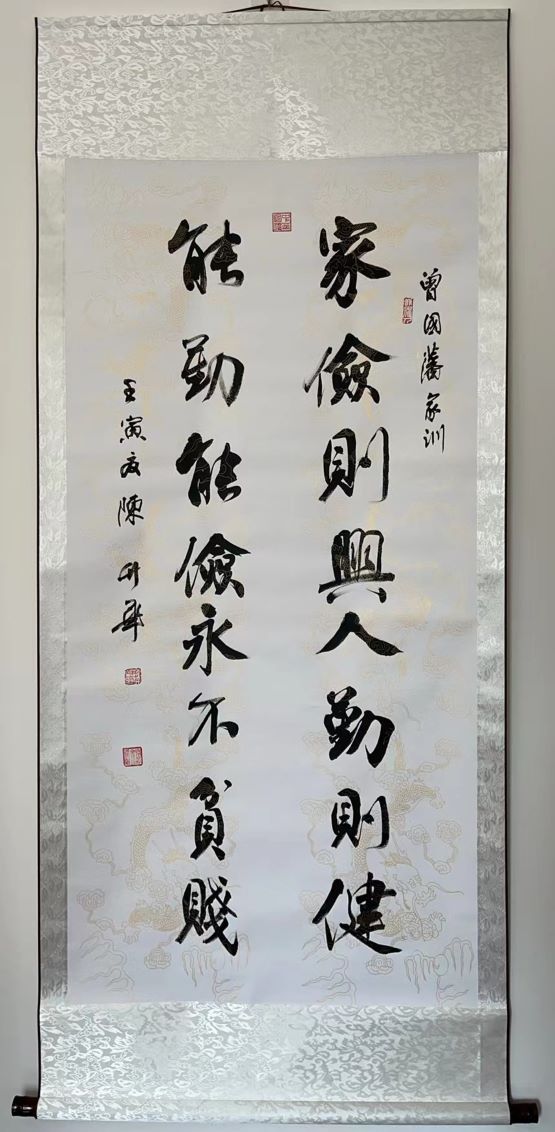 曾國藩家训
家儉則興人勤則健
能勤能儉永不貧賤
壬寅夜陳竹華